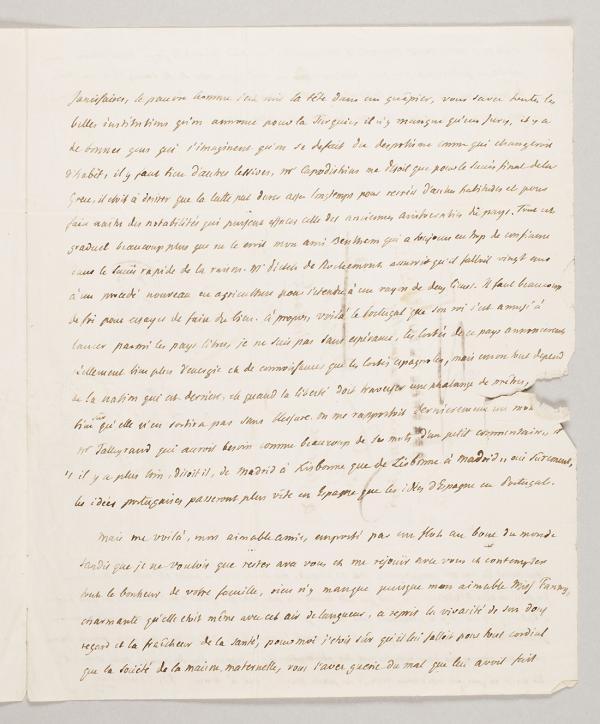 le pauvre homme s'est mis la tête dans un guêpier, vous savez toutes les
belles institutions qu'on annonce pour la Turquie, il n'y manque qu'un Jury, il y a
de bonnes gens qui s'imaginent qu'on se défait du despotisme comme qui changeroit
d'habit, il y faut bien d'autres lessives, Mr Capodistrias me disoit que pour le succès final de la
Grece, il étoit à désirer que la lutte pût durer assez longtemps pour d'anciennes habitudes et pour
faire naitre des notabilités qui pussent effacer celle des anciennes aristocraties du pays. Tout est
graduel beaucoup plus que ne le croit mon ami Bentham qui a toujours eu trop de confiance
dans le succès rapide de la raison. Mr Pictet de Rochemont assuroit qu'il falloit vingt ans
à un procédé nouveau en agriculture pour s'étendre à un rayon de deux lieues. Il faut beaucoup
de foi pour essayer de faire du bien. à propos, voilà le Portugal que son roi s'est amusé à
lancer parmi les pays libres, je ne suis pas sans espérance, les Cortès de ce pays annoncerent
réellement bien plus d'energie et de connoissances que les Cortès espagnoles, mais encore tout dépend
de la nation qui est derriere, et quand la liberté doit traverser une phalange de prêtres,
bien sûr qu'elle n'en sortira pas sans blessure. On me rapportoit dernierement un mot
Mr Talleyrand qui auroit besoin comme beaucoup de ses mots d'un petit commentaire,
il y a plus loin, disoit il, de Madrid à Lisbonne que de Lisbonne à Madrid, oui surement,
les idées portugaises passeront plus vîte en Espagne que les idées d'Espagne en Portugal.
Mais me voilà, mon aimable amie, emporté par un flot au bout du monde
tandis que je ne voulois que rester avec vous et me rejouir avec vous et contempler
tout le bonheur de votre famille, rien n'y manque puisque mon aimable Miss Fanny,
charmante qu'elle étoit même avec cet air de langueur, a repris la vivacité de son doux
regard et la fraîcheur de la santé, pour moi j'étois sûr qu'il lui falloit pour tout cordial
que la société de la maison maternelle, vous l'avez guerie du mal que lui avoit fait